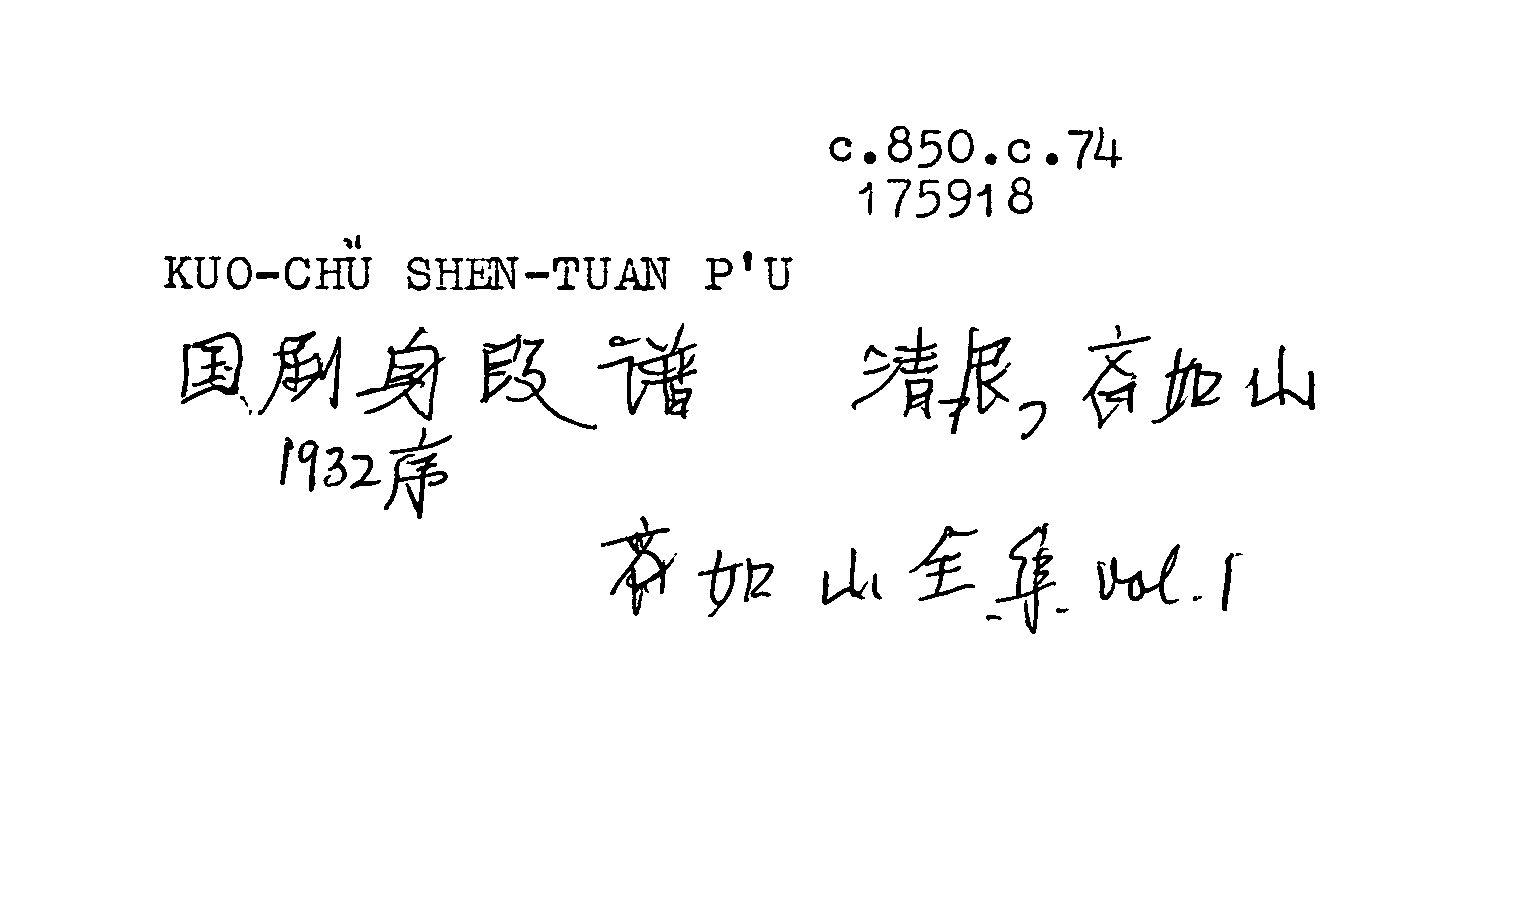 c.850.c.74
175918
KUO-CHÜ SHEN-TUAN P'U
国劇身段譜 清展,齐如山
1932序
齐如山全集 vol.1